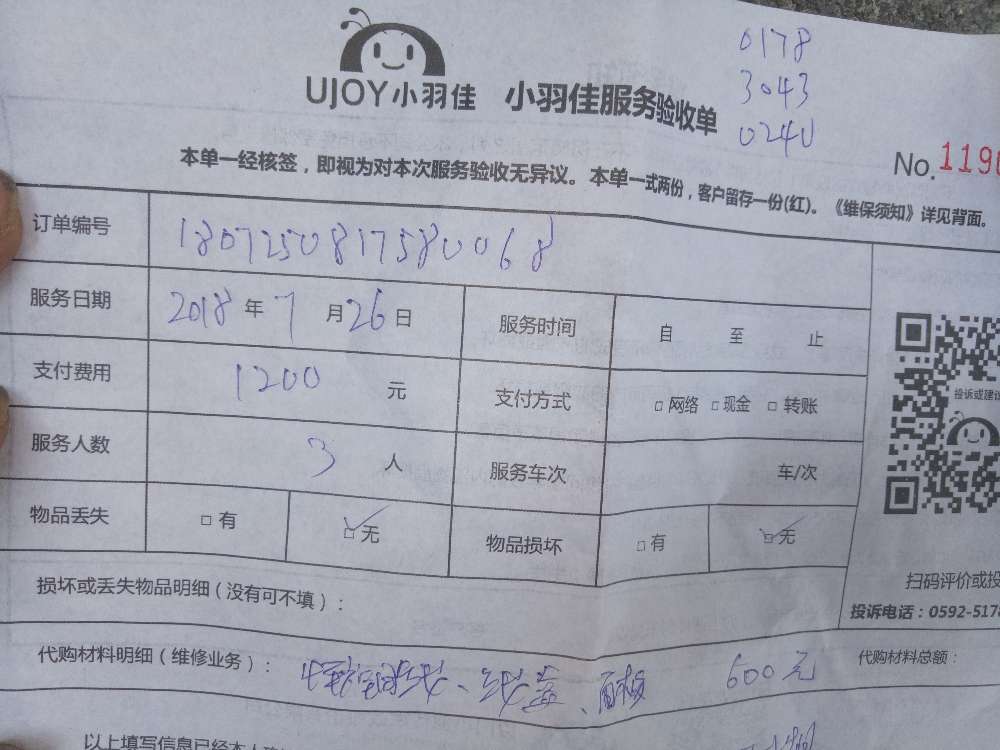 0178
3043
0240
UJOY小羽佳 小羽佳服务验收单
No.119
本单一经核签，即视为对本次服务验收无异议。本单一式两份，客户留存一份(红)。《维保须知》详见背面。
订单编号 1807250817580068
服务日期 2018年7月26日 服务时间 自 至 止
支付费用 1200 元 支付方式 □网络 □现金 □转账
投诉或建议
服务人数 3 人 服务车次 车/次
物品丢失 □有 □无 物品损坏 □有 □无
扫码评价或投
损坏或丢失物品明细（没有可不填）：
投诉电话：0592-5178
代购材料明细（维修业务）： 600元 代购材料总额：
以上填写信息已经本人确